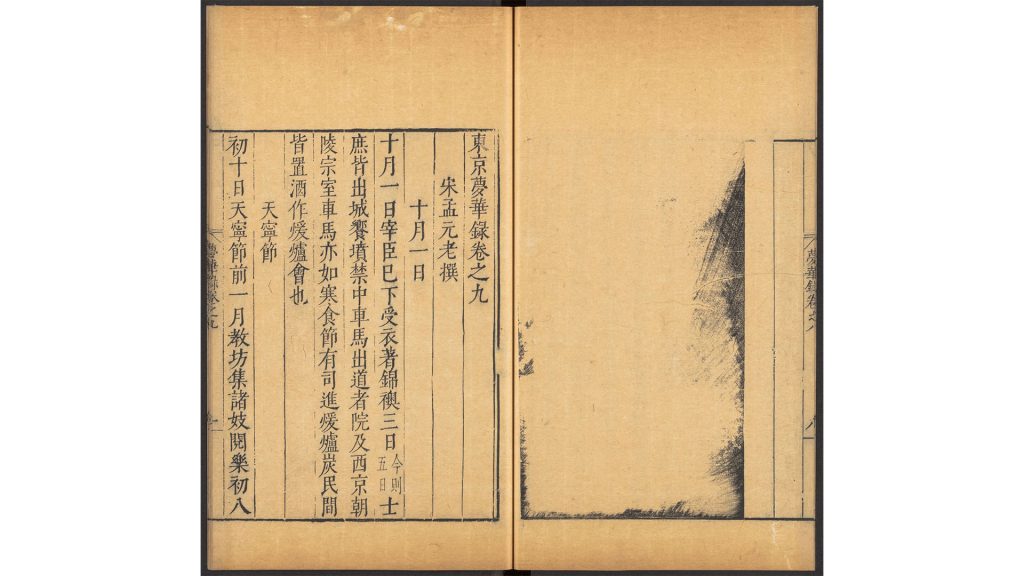 夢華錄卷之八
八
東京夢華錄卷之九
宋孟元老撰
十月一日
十月一日宰臣已下受衣著錦襖三日今則五日士
庶皆出城饗墳禁中車馬出道者院及西京朝
陵宗室車馬亦如寒食節有司進煖爐炭民間
皆置酒作煖爐會也
天寧節
初十日天寧節前一月教坊集諸妓閱樂初八
夢華錄卷之九
一